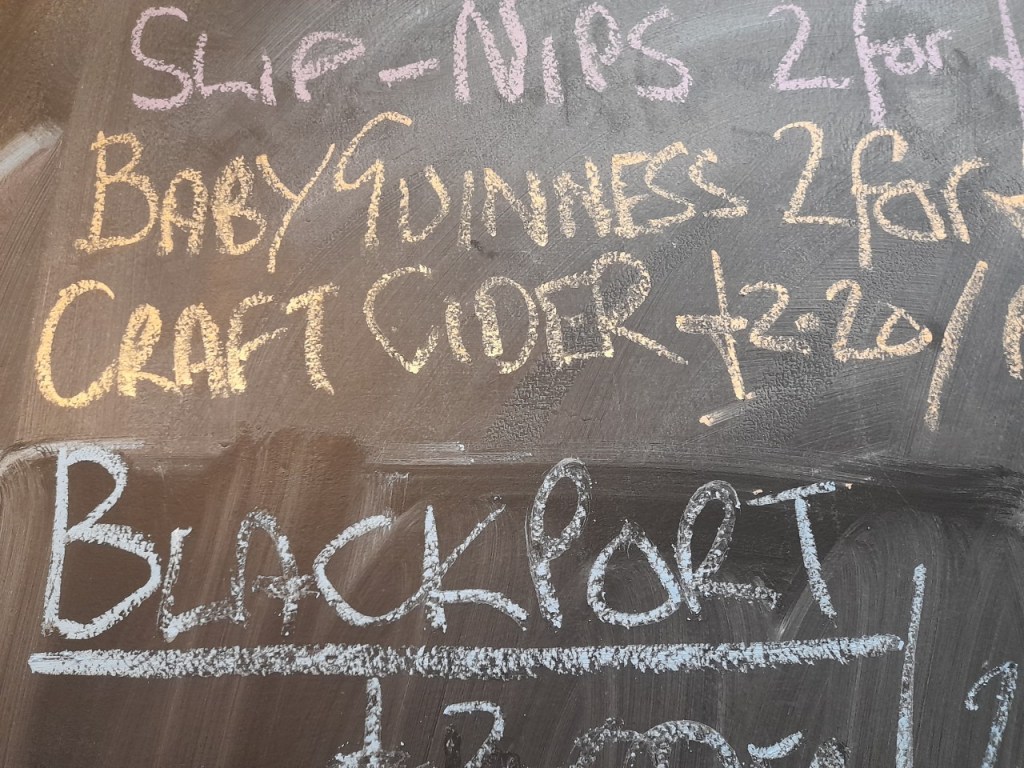 SLIP-NIPS 2 for
BABY GUINNESS 2 for
CRAFT CIDER £2.20/
BLACKPORT